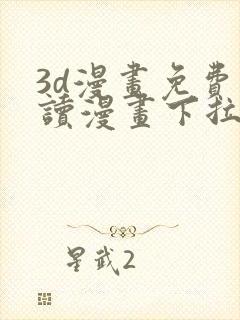 3d漫畫免費
讀漫畫下拉
星武2